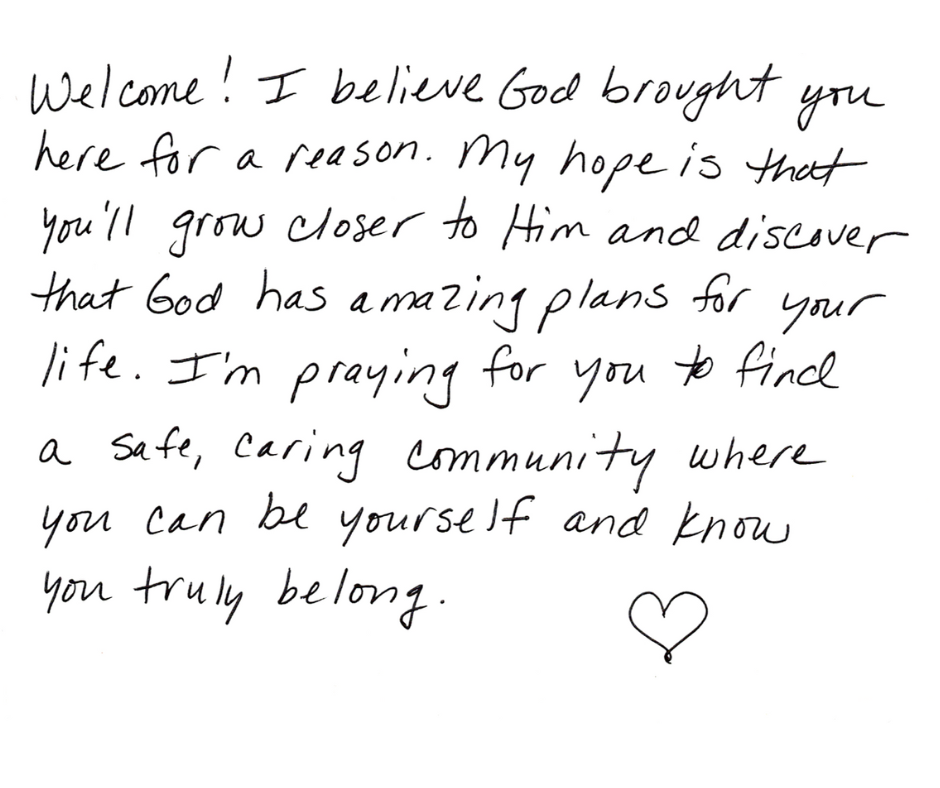 Welcome! I believe God brought you
here for a reason. My hope is that
you'll grow closer to Him and discover
that God has amazing plans for your
life. I'm praying for you to find
a safe, caring community where
you can be yourself and know
you truly belong.